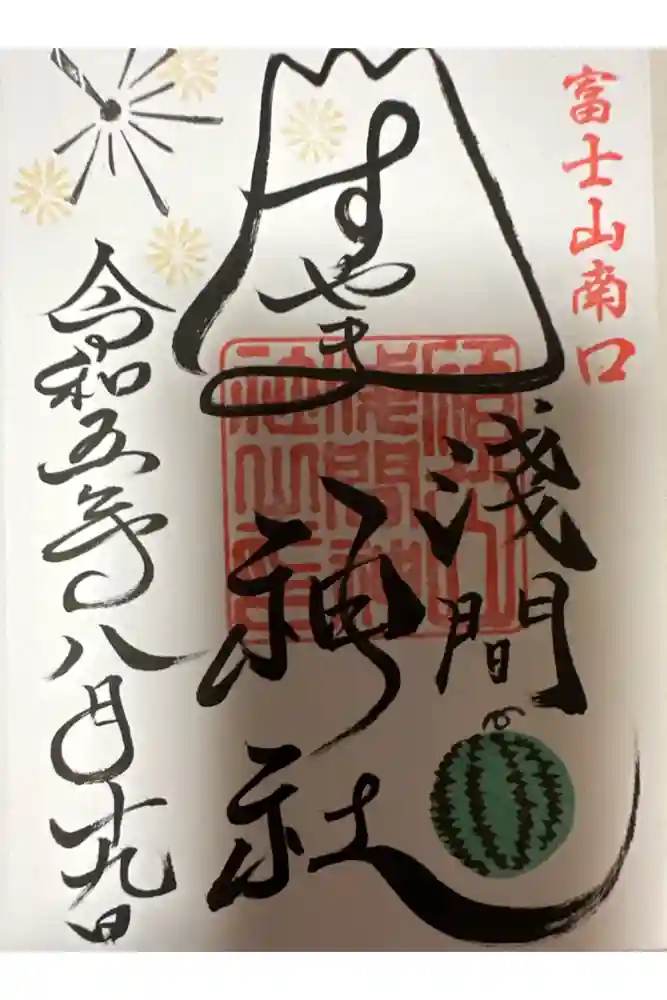 富士山南口
すやま
淺間
神社
令和五年八月十九日